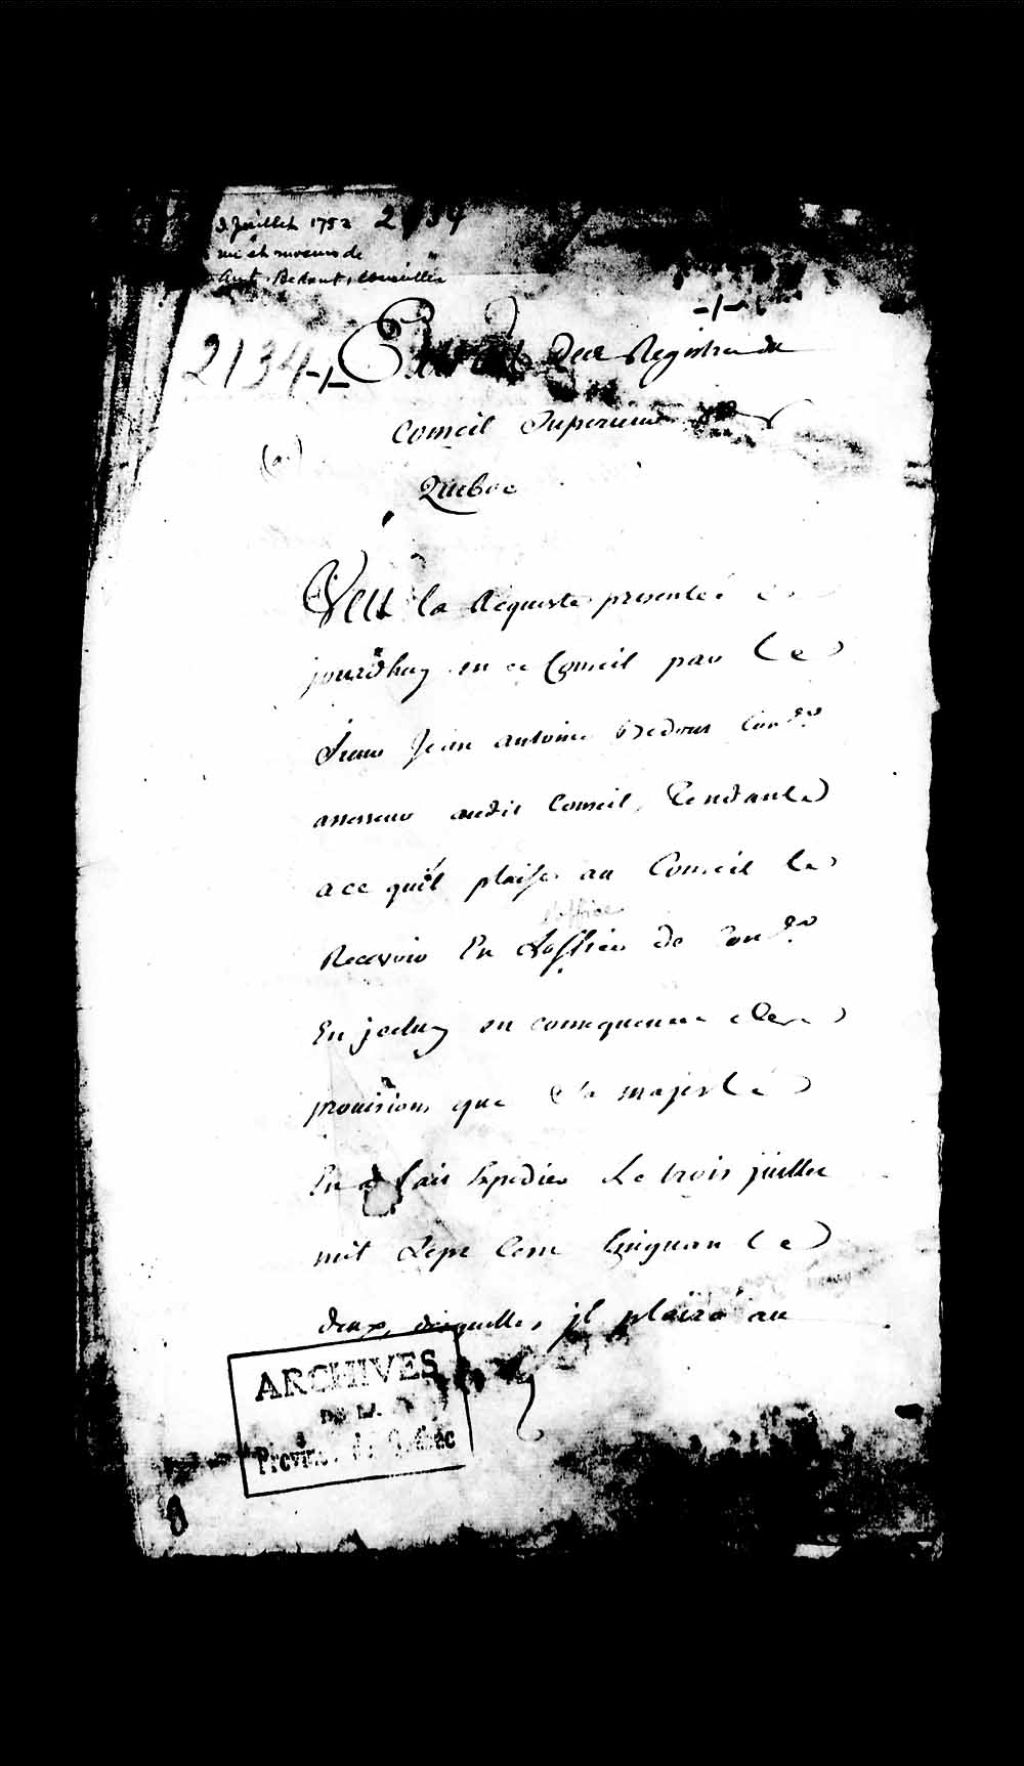 3 Juillet 1752 2134
vie et moeurs de
Ant. Bedout, conseiller
2134-/-
Extrait Des Registres du
Conseil Superieur de
Quebec
(a.)
Veu la Requeste presentée
jourdhuy en ce Conseil par Le
Sieur Jean antoine Bedout Con.er
assesseur audit Conseil, Tendante
a ce quil plaise au Conseil le
l'office
Recevoir En Loffice de Con.er
En jceluy en consequence des
prouisions que Sa majesté
En a fait Expedier Le trois juillet
mil Sept Cent Cinquante
deux, desquelles jl plaira au
ARCHIVES
DE LA
Province de Québec
8